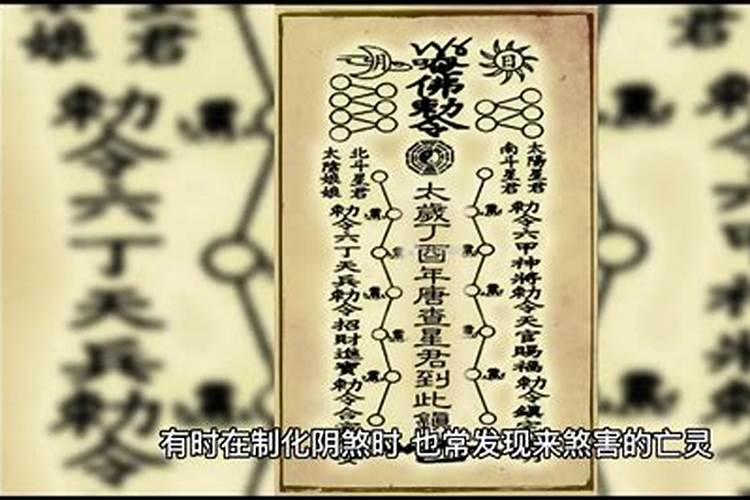 唵佛敕令
月
日
太陽星君
南斗星君
北斗星君
太陰娘娘
敕令六甲神將敕令天官賜福敕令鎮宅
太歲丁酉年唐查星君到此鎮
敕令六丁天兵敕令招財進寶敕令合
有时在制化阴煞时 也常发现来煞害的亡灵